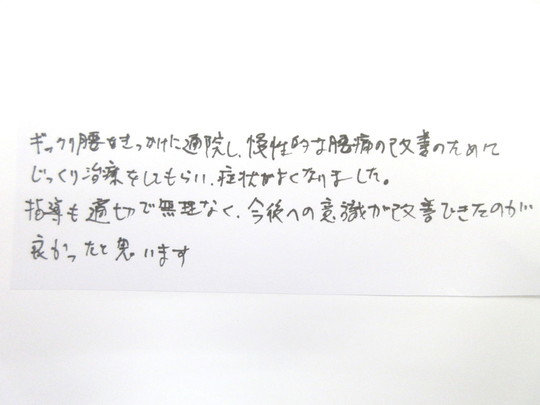 ギックリ腰をきっかけに通院し、慢性的な腰痛の改善のためにて
じっくり治療をしてもらい、症状がよくなりました。
指導も適切で無理なく、今後への意識が改善できたのが
良かったと思います